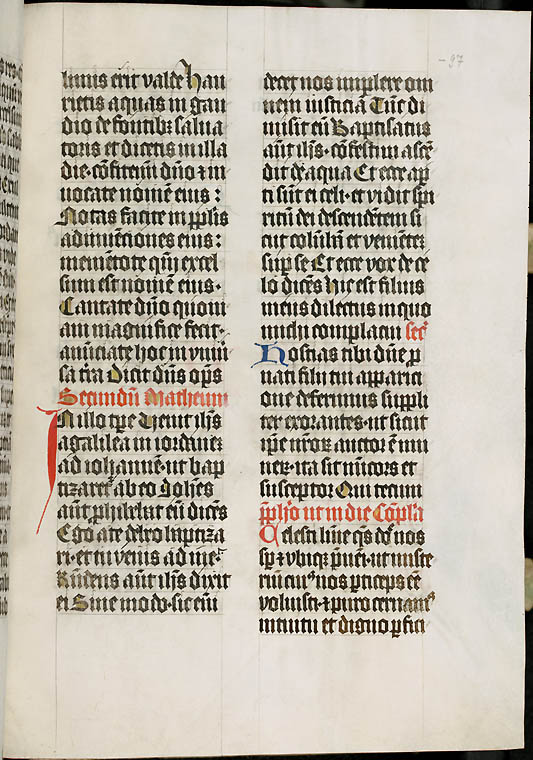 limis erit valde Hau
rietis aquas in gau
dio de fontibꝫ salua
toris et dicetis in illa
die· cōfitemī dn̄o ⁊ in
uocate nomē eius :
Notas facite in pp̄lis
adinuenciones eius :
memētote qm̄ excel
sum est nomē eius·
Cantate dn̄o quoni
am magnifice fecit·
anūciate hoc in vniu
sa tr̄a Dicit dn̄s op̄s
Secundū Matheum
In illo tp̄e Uenit ih̄s
a galilea in iordanē
ad iohannē· ut bap
tizaretᷣ ab eo Joh̄es
aūt ꝓhibebat eū dicēs
Ego a te debeo baptiza
ri· et tu venis ad me·
Rn̄dens aūt ih̄s dixit
ei Sine modo· sic eni
97
decet nos implere om
nem iusticiā Tūc di
misit eū Baptisatus
aūt ih̄s· cōfestim ascē
dit de aqua Et ecce apꝑ
ti sūt ei celi· et vidit spi
ritū dei descendētem si
cut colūbā· et venietē
suꝑ se Et ecce vox de ce
lo dicēs Hic est filius
meus dilectus in quo
michi complacui secᷓ
Hostias tibi dn̄e ꝓ
nati filii tui apparici
one deferimus suppli
ter exorantes· ut sicut
ip̄e nr̄orꝫ auctor ē mu
nerꝫ· ita sit mīcors et
susceptor Qui tecum
p̄fh̄o ut in die Cōpl̄a
Celesti lūie q̄s dn̄e nos
sp̄ ⁊ vbiqꝫ p̄ueī· ut miste
riū cuiꝰ nos ꝑticeps eē
voluisti· ⁊ puro cernamꝰ
intuitu et digno ꝑfici